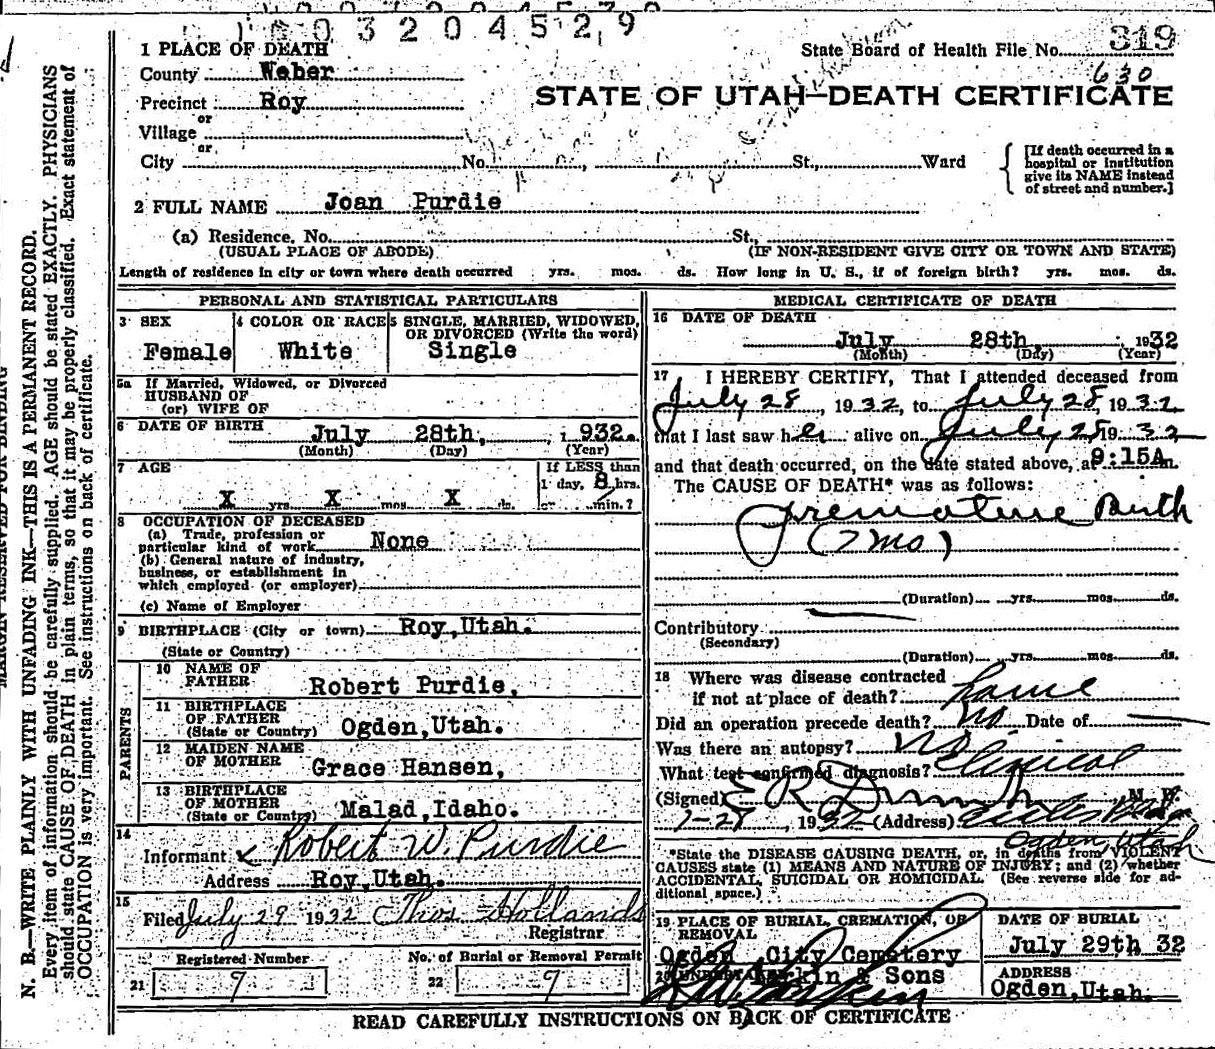 0 0 3 2 0 4 5 2 9
1 PLACE OF DEATH
State Board of Health File No. 319
County Weber
630
Precinct Roy
STATE OF UTAH—DEATH CERTIFICATE
or
Village
or
City No. St., Ward
[If death occurred in a hospital or institution give its NAME instead of street and number.]
2 FULL NAME Joan Purdie
(a) Residence. No. St.,
(USUAL PLACE OF ABODE) (IF NON-RESIDENT GIVE CITY OR TOWN AND STATE)
Length of residence in city or town where death occurred yrs. mos. ds. How long in U. S., if of foreign birth? yrs. mos. ds.
PERSONAL AND STATISTICAL PARTICULARS
3 SEX
Female
4 COLOR OR RACE
White
5 SINGLE, MARRIED, WIDOWED,
OR DIVORCED (Write the word)
Single
5a If Married, Widowed, or Divorced
HUSBAND OF
(or) WIFE OF
6 DATE OF BIRTH July 28th, 1932.
(Month) (Day) (Year)
7 AGE
If LESS than
1 day, 8 hrs.
X yrs. X mos. X ds. or min.?
8 OCCUPATION OF DECEASED
(a) Trade, profession or
particular kind of work None
(b) General nature of industry,
business, or establishment in
which employed (or employer)
(c) Name of Employer
9 BIRTHPLACE (City or town) Roy, Utah.
(State or Country)
PARENTS
10 NAME OF
FATHER Robert Purdie,
11 BIRTHPLACE
OF FATHER
(State or Country) Ogden, Utah.
12 MAIDEN NAME
OF MOTHER Grace Hansen,
13 BIRTHPLACE
OF MOTHER
(State or Country) Malad, Idaho.
14
Informant x Robert W. Purdie
Address Roy, Utah.
15
Filed July 29 1932 Thos Hollands
Registrar
Registered Number
21 9
No. of Burial or Removal Permit
22 9
MEDICAL CERTIFICATE OF DEATH
16 DATE OF DEATH
July 28th, 1932
(Month) (Day) (Year)
17 I HEREBY CERTIFY, That I attended deceased from
July 28, 1932, to July 28, 1932
that I last saw her alive on July 28 1932
and that death occurred, on the date stated above, at 9:15A m.
The CAUSE OF DEATH* was as follows:
Premature Birth
(7 mo)
(Duration) yrs. mos. ds.
Contributory
(Secondary)
(Duration) yrs. mos. ds.
18 Where was disease contracted
if not at place of death?
Did an operation precede death? no Date of
Was there an autopsy? no
What test confirmed diagnosis? Clinical
(Signed) M. D.
7-28, 1932 (Address)
Ogden Utah
*State the DISEASE CAUSING DEATH, or, in deaths from VIOLENT
CAUSES state (1) MEANS AND NATURE OF INJURY; and (2) whether
ACCIDENTAL, SUICIDAL OR HOMICIDAL. (See reverse side for ad-
ditional space.)
19 PLACE OF BURIAL, CREMATION, OR
REMOVAL
Ogden City Cemetery
DATE OF BURIAL
July 29th 32
20 UNDERTAKER Larkin & Sons
ADDRESS
Ogden, Utah.
READ CAREFULLY INSTRUCTIONS ON BACK OF CERTIFICATE
MARGIN RESERVED FOR BINDING
N. B.—WRITE PLAINLY WITH UNFADING INK—THIS IS A PERMANENT RECORD.
Every item of information should be carefully supplied. AGE should be stated EXACTLY. PHYSICIANS
should state CAUSE OF DEATH in plain terms, so that it may be properly classified. Exact statement of
OCCUPATION is very important. See instructions on back of certificate.